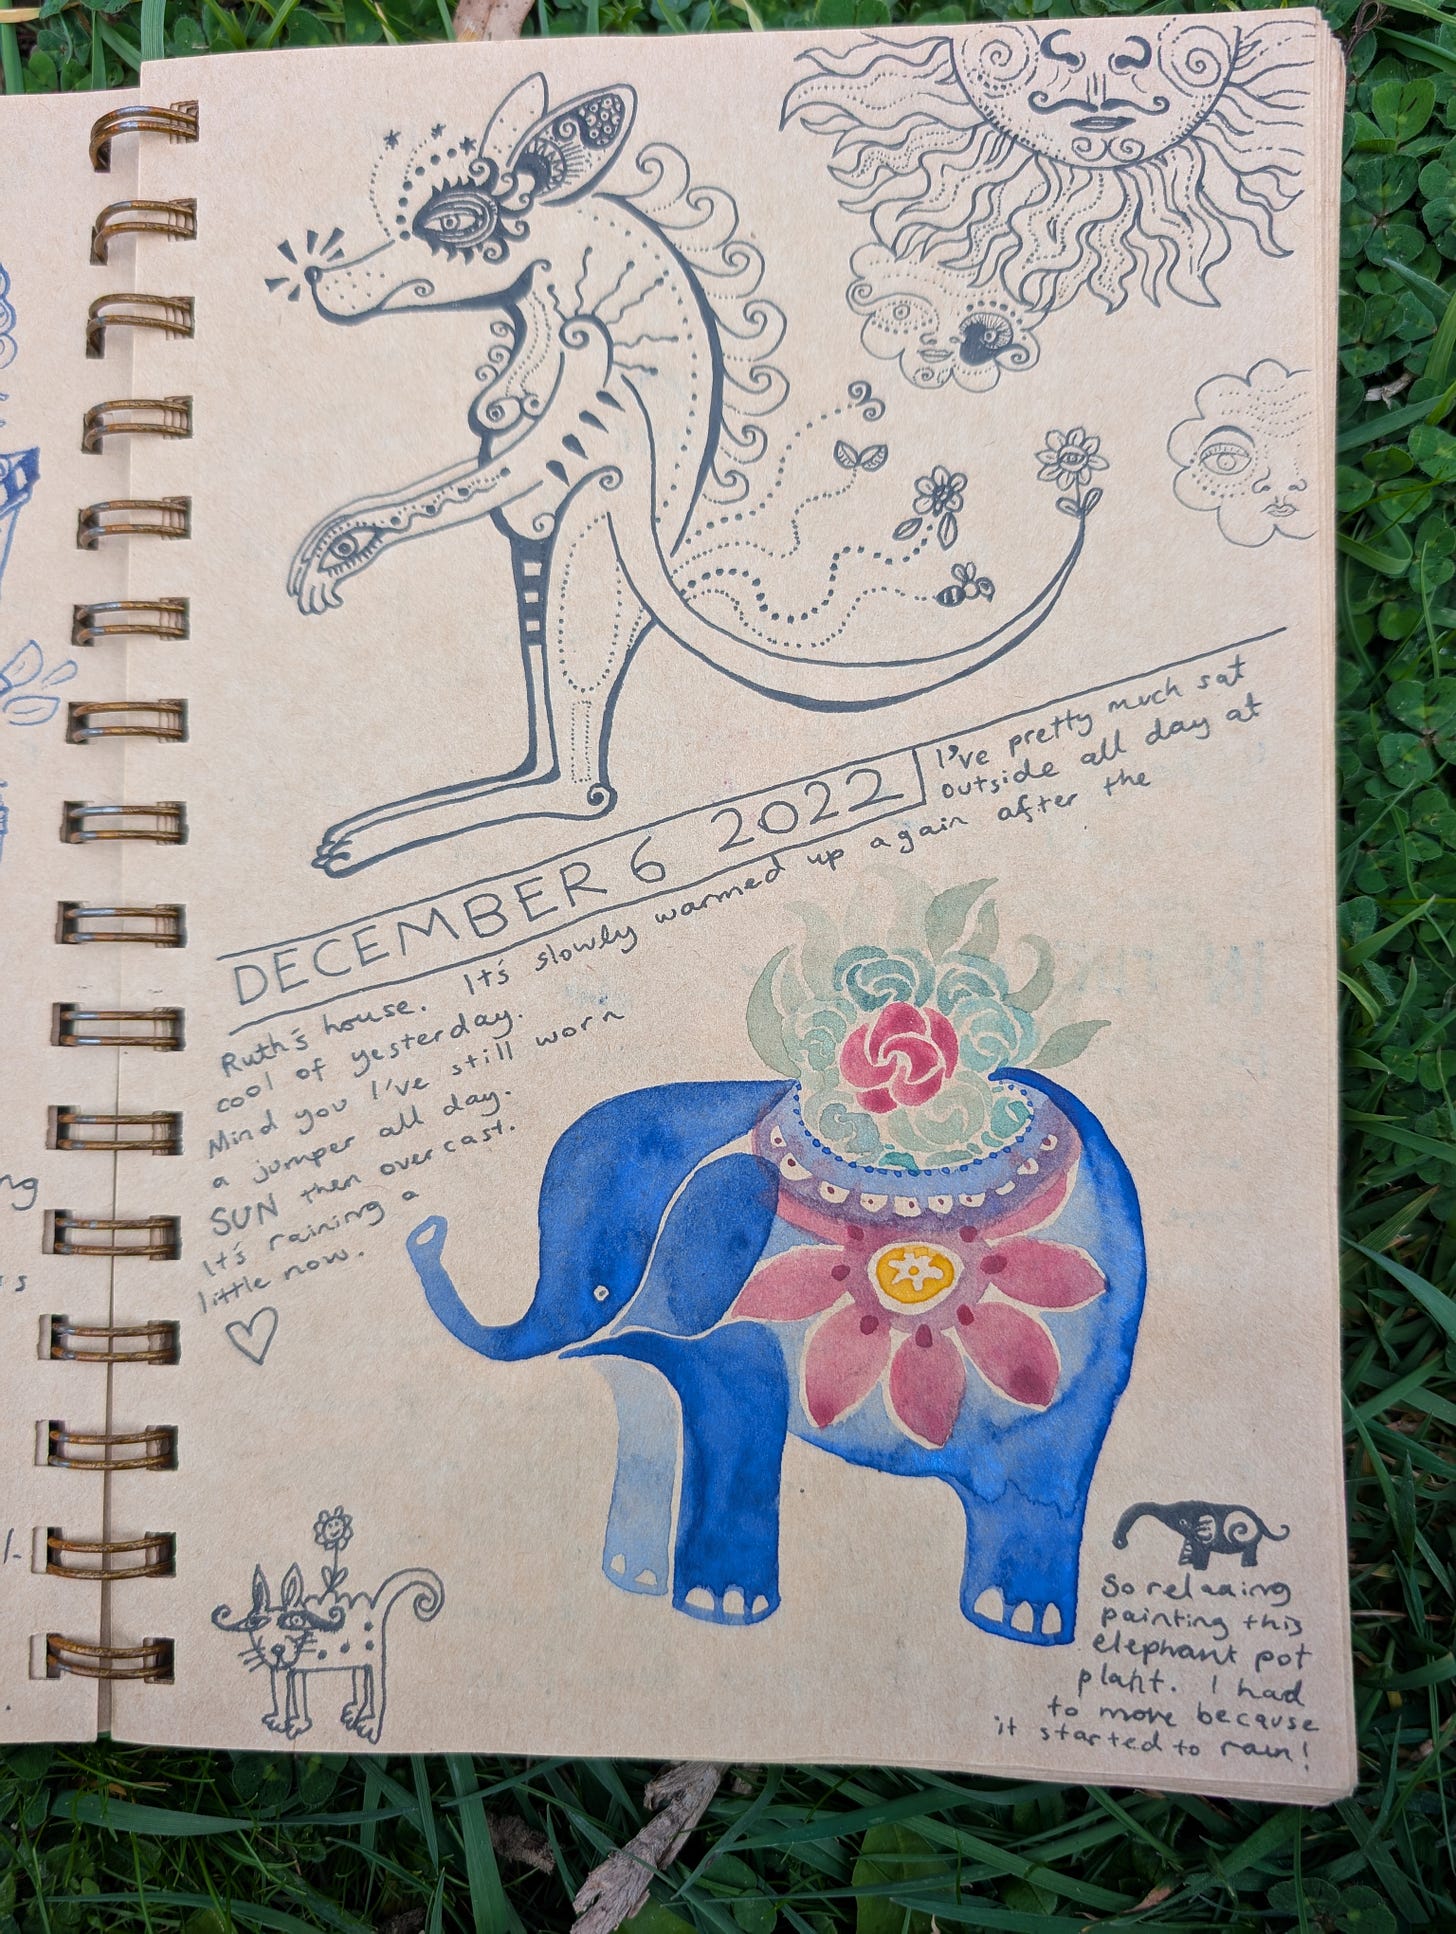 DECEMBER 6 2022
I've pretty much sat
outside all day at
Ruth's house. It's slowly warmed up again after the
cool of yesterday.
Mind you I've still worn
a jumper all day.
SUN then overcast.
It's raining a
little now.
So relaxing
painting this
elephant pot
plant. I had
to move because
it started to rain!
ng
s